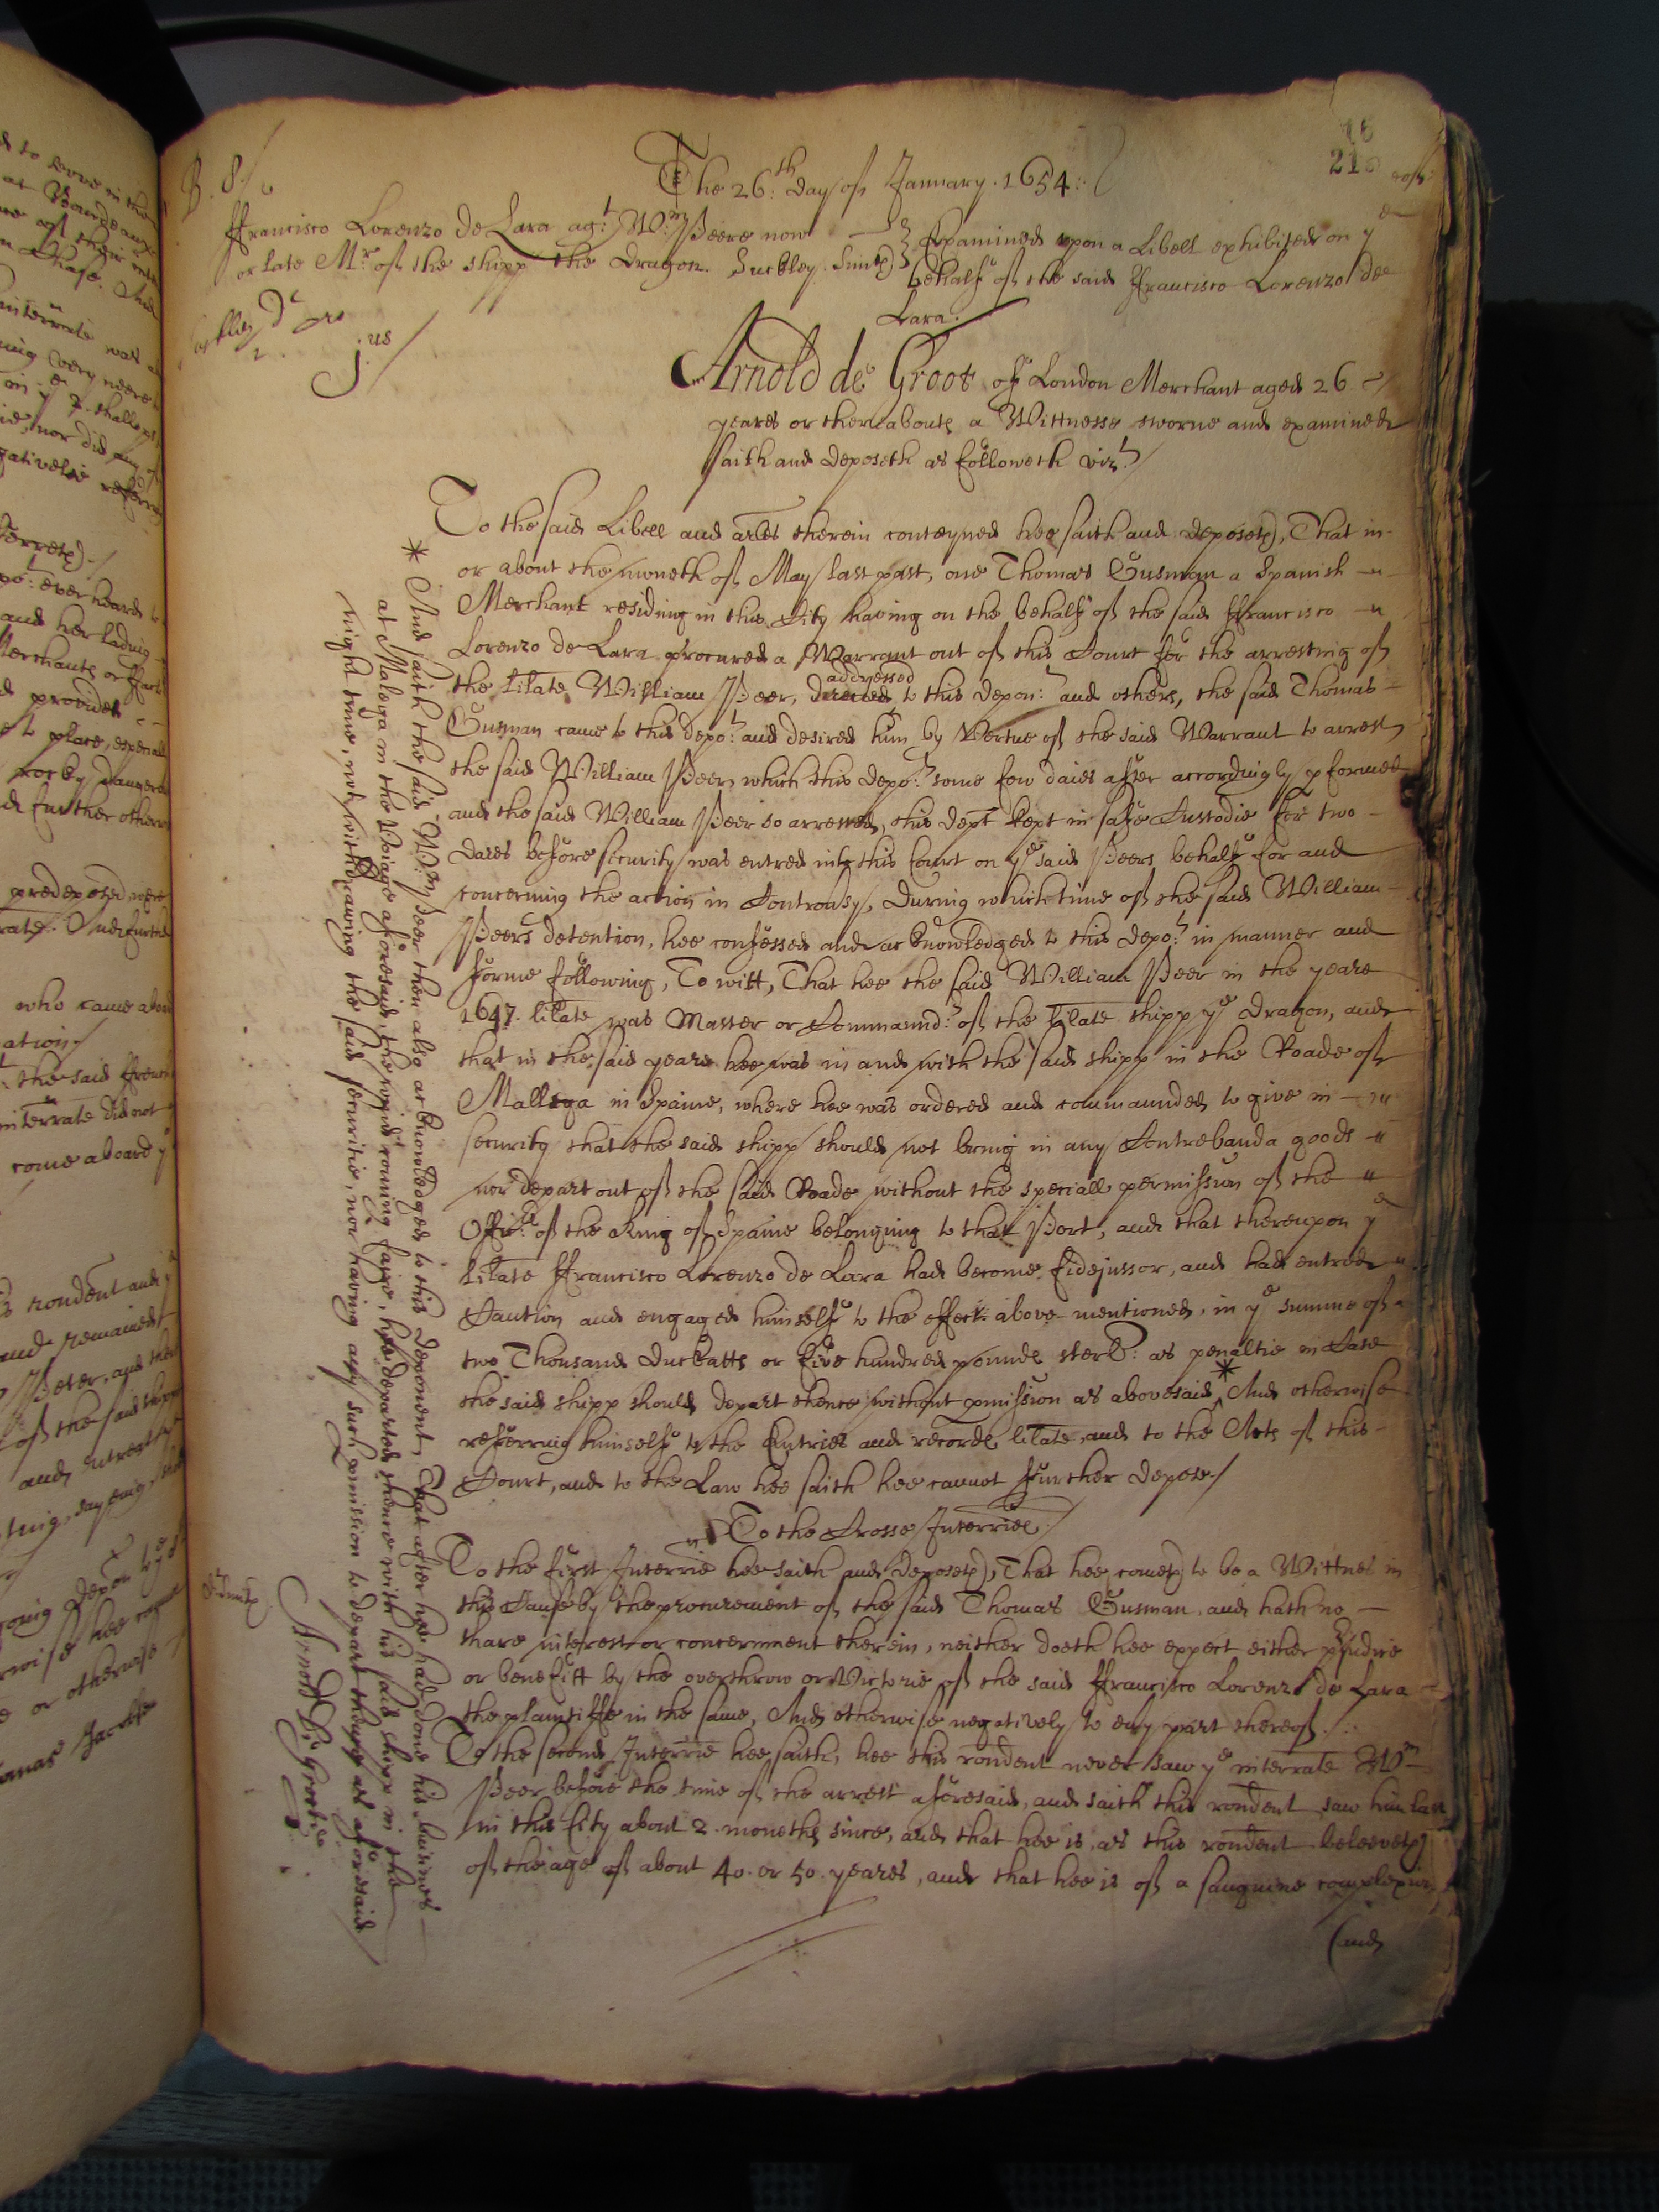 B. 8.
The 26:th day of January. 1654:
ffrancisco Lorenzo De Lara agt: Wm: Peere now
or late Mr of the shipp the Dragon. Suckley. Smith
Examined upon a Libell exhibited on ye
behalf of the said ffrancisco Lorenzo de
Lara.
j.us
Arnold de Groot of London Merchant aged 26
yeares or thereabouts a Wittnesse sworne and examined
saith and deposeth as followeth vizt
To the said Libell and arles therein conteyned hee saith and deposeth, That in
or about the moneth of May last past, one Thomas Gusman a Spanish
Merchant residing in this City having on the behalf of the said ffrancisco
Lorenzo de Lara procured a Warrant out of this Court for the arresting of
addressed
the lilate William Peer, directed to this depon:t and others, the said Thomas
Gusman came to this depo:t and desired him by Vertue of the said Warrant to arrest
the said William Peer, which this depo:t some few daies after accordingly pformed
and the said William Peer so arrested, this dept kept in safe Custodie for two
daies before security was entred into this Court on ye said Peers behalf for and
concerning the action in Controvsy, During which time of the said William
Peers detention, hee confessed and acknowledged to this depo:t in manner and
forme following, To witt, That hee the said William Peer in the yeare
1647. lilate was Master or Commaund:r of the lilate shipp ye Dragon, and
that in the said yeare hee was in and with the said shipp in the Roade of
Mallega in Spaine, where hee was ordered and commaunded to give in
security that the said shipp should not bring in any Contrebanda goods
nor depart out of the said Roade without the speciall permission of the
Offic:rs of the King of Spaine belonging to that Port, and that thereupon ye
lilate ffrancisco Lorenzo de Lara had become fidejussor, and had entred
Caution and engaged himself to the effect above mentioned, in ye summe of
two Thousand Duckatts or five hundred pounds sterl: as penaltie in Case
the said shipp should depart thence without pmission as abovesaid * And otherwise
referring himself to the Entries and records lilate, and to the Acts of this
Court, and to the Law hee saith hee cannot further depose./
To the Crosse Interries.
To the first Interrie hee saith and deposeth, That hee cometh to be a Wittnes in
this Cause by the procurement of the said Thomas Gusman, and hath no
share interest or concernment therein, neither doeth hee expect either pjudice
or benefitt by the overthrow or Victorie of the said ffrancisco Lorenzo de Lara
the plaintiffe in the same, And otherwise negatively to evy part thereof.
To the second Interrie hee saith, hee this rondent never saw ye interrate Wm
Peer before the time of the arrest aforesaid, and saith this rondent saw him last
in this City about 2. moneths since, and that hee is, as this rondent beleeveth
of the age of about 40. or 50. yeares, and that hee is of a sanguine complexion
(and
* And saith the said Wm Peer then also acknowledged to this deponent, That after hee had done his busines
at Malega in the Voiage aforesaid, the wind coming faire, hee departed thence with his said shipp in the
night time, not withdrawing the said securitie, nor having any such pmission to depart thence as aforesaid
Arnold De Groot